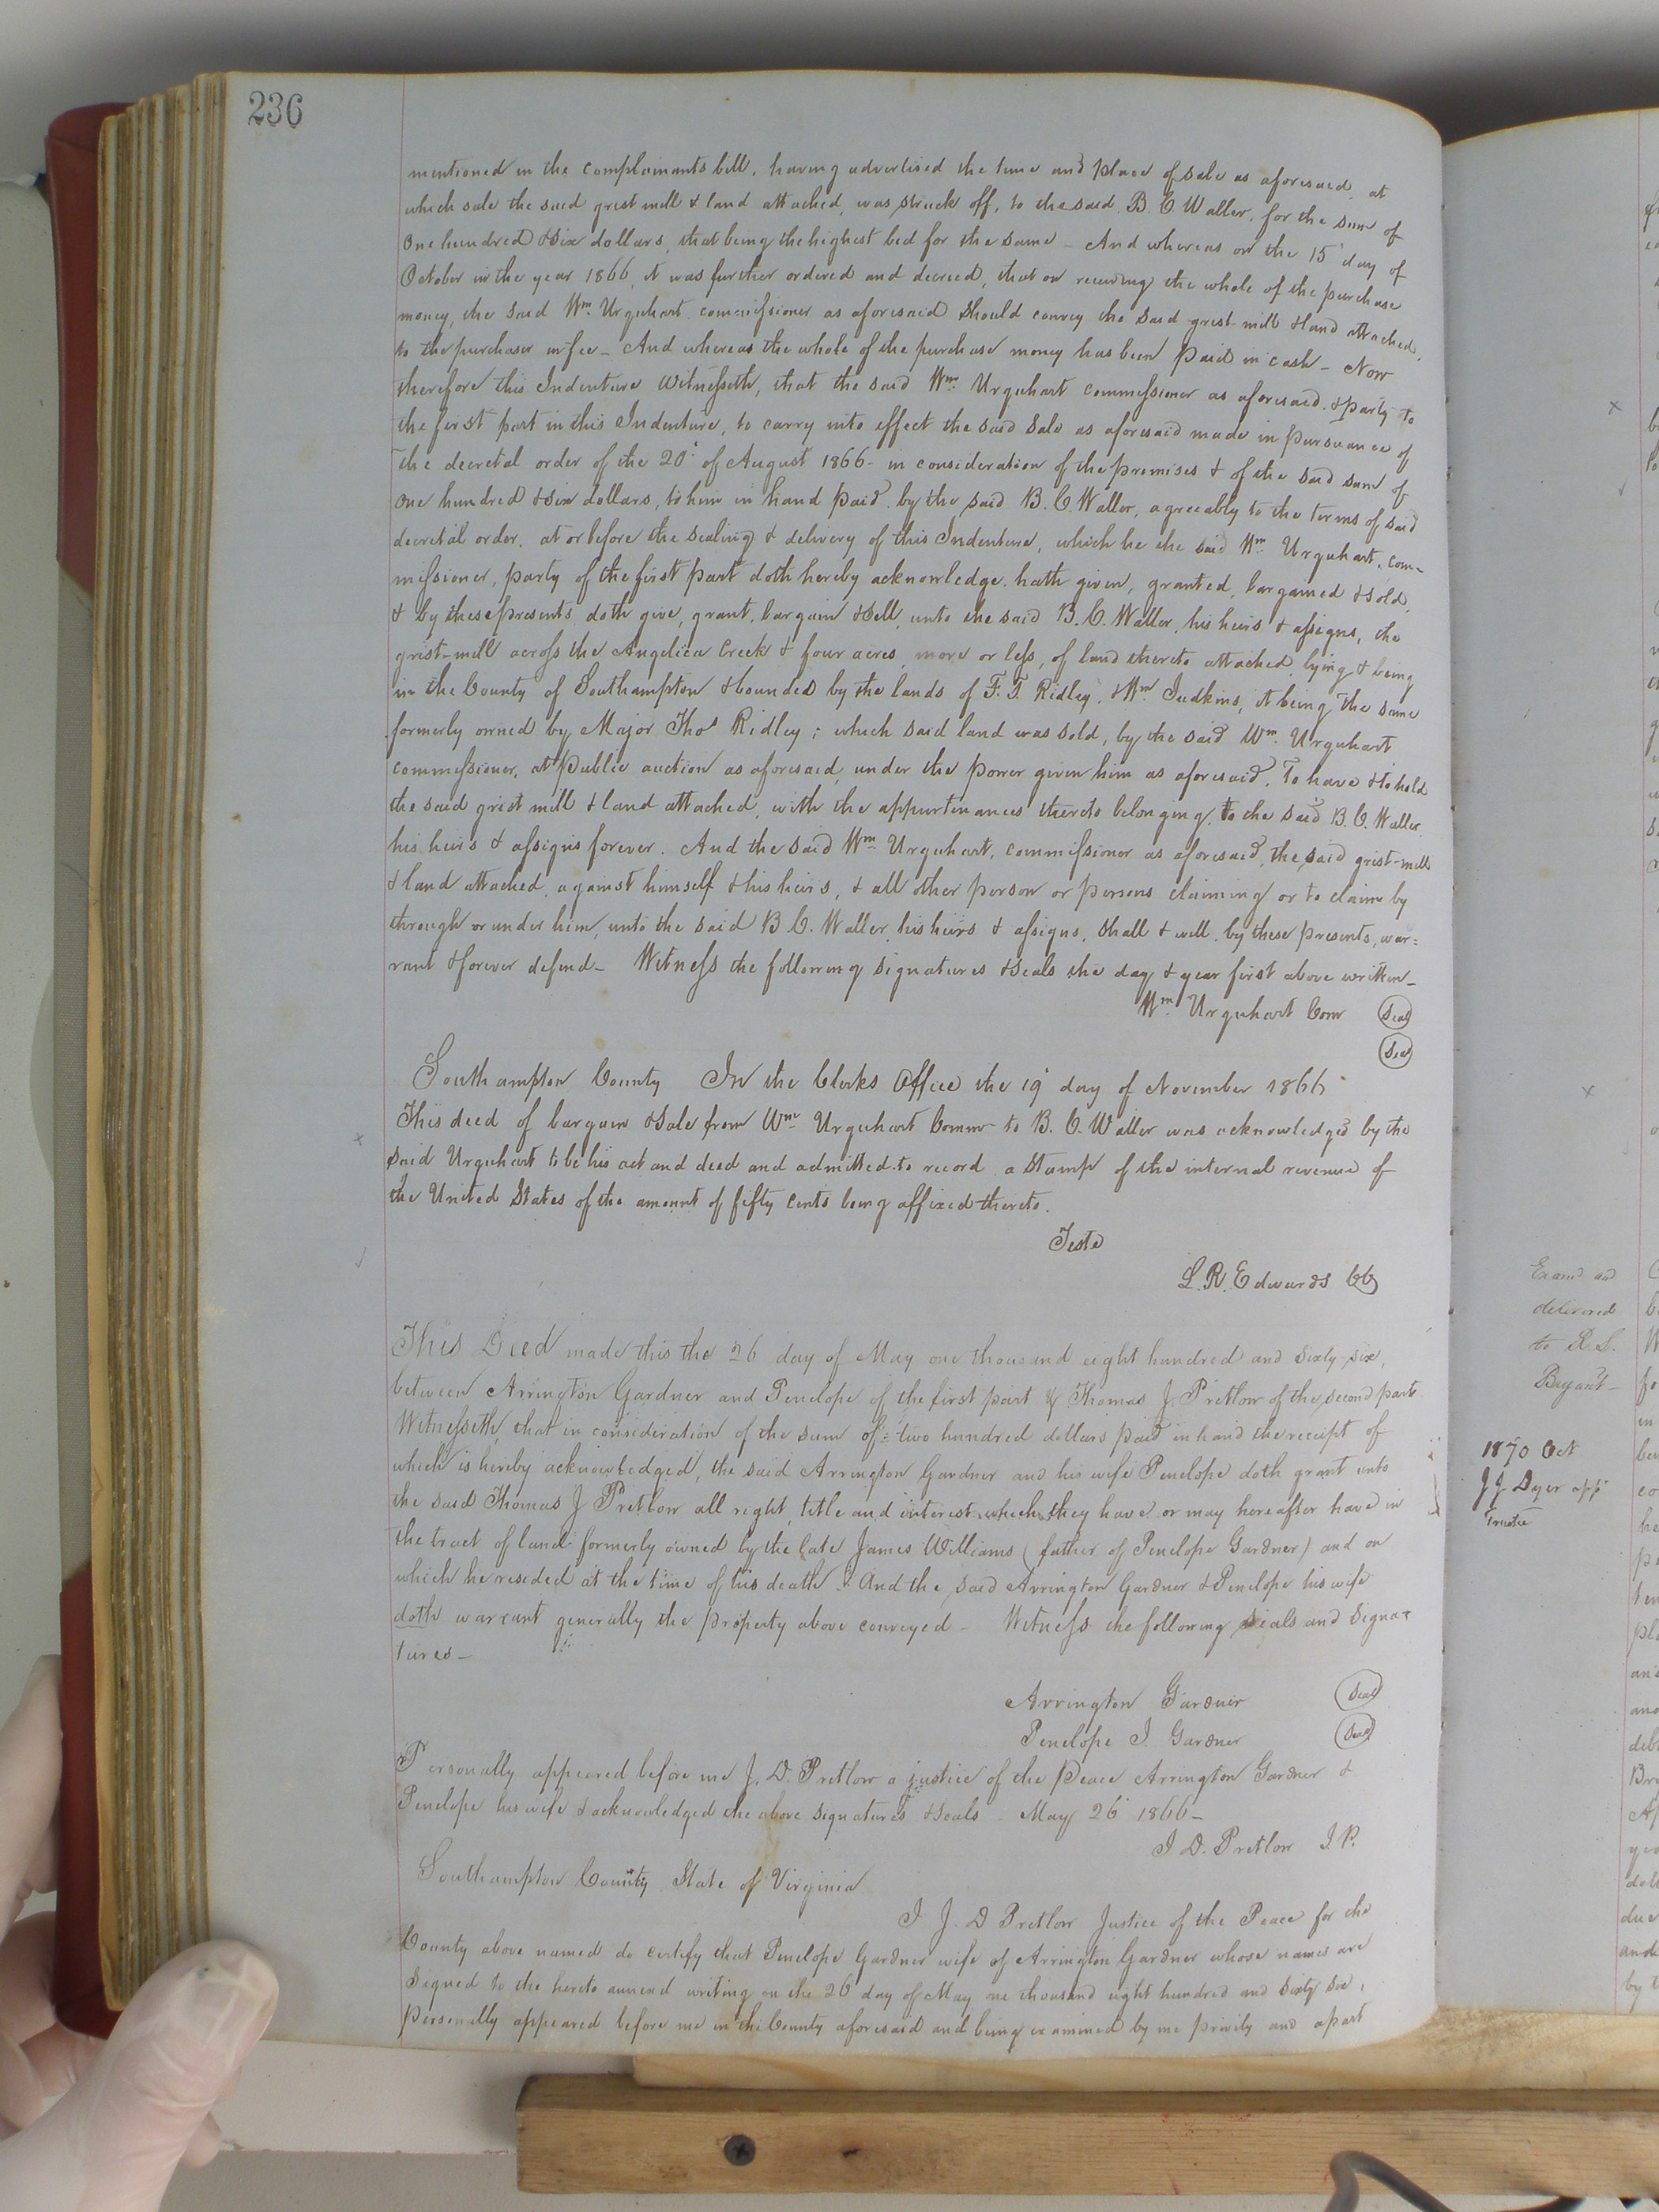 236
mentioned in the complainants bill, having advertised the time and place of sale as aforesaid, at
which sale the said grist mill & land attached, was struck off, to the said B. C. Waller, for the sum of
One hundred & six dollars, that being the highest bid for the same – And whereas on the 15 day of
October in the year 1866, it was further ordered and decreed, that on receiving the whole of the purchase
money, the said Wm. Urquhart commissioner as aforesaid should convey the said grist mill & land attached,
to the purchaser in fee – And whereas the whole of the purchase money has been paid in cash – Now
therefore this Indenture Witnesseth, that the said Wm. Urquhart commissioner as aforesaid, & party to
the first part in this Indenture, to carry into effect the said sale as aforesaid made in pursuance of
the decretal order of the 20 of August 1866 – in consideration of the premises & of the said sum of
One hundred & six dollars, to him in hand paid by the said B. C. Waller, agreeably to the terms of said
decretal order, at or before the sealing & delivery of this Indenture, which he the said Wm. Urquhart, com-
missioner, party of the first part doth hereby acknowledge, hath given, granted, bargained & sold,
& by these presents, doth give, grant, bargain & sell, unto the said B. C. Waller, his heirs & assigns, the
grist-mill across the Angelica Creek & four acres, more or less, of land thereto attached lying & being
in the County of Southampton & bounded by the lands of F. T. Ridley, & Wm. Judkins, it being the same
formerly owned by Major Thos Ridley; which said land was sold, by the said Wm. Urquhart
commissioner, at public auction as aforesaid, under the power given him as aforesaid, To have & to hold
the said grist mill & land attached, with the appurtenances thereto belonging, to the said B. C. Waller,
his heirs & assigns forever. And the said Wm. Urquhart, commissioner as aforesaid, the said grist-mill
& land attached, against himself & his heirs, & all other person or persons claiming or to claim by
through or under him, unto the said B C. Waller, his heirs & assigns, shall & will, by these presents, war=
rant & forever defend – Witness the following signatures & seals the day & year first above written –
Wm. Urquhart Comr Seal
Seal
Southampton County In the Clerks Office the 19 day of November 1866
This deed of bargain & sale from Wm. Urquhart Commr to B. C. Waller was acknowledged by the
said Urquhart to be his act and deed and admitted to record a stamp of the internal revenue of
the United States of the amount of fifty cents being affixed thereto.
Teste
L. R. Edwards CC
This Deed made this the 26 day of May one thousand eight hundred and sixty-six,
between Arrington Gardner and Penelope of the first part & Thomas J. Pretlow of the second part
Witnesseth, that in consideration of the sum of two hundred dollars paid in hand the receipt of
which is hereby acknowledged, the said Arrington Gardner and his wife Penelope doth grant unto
the said Thomas J Pretlow all right, title and interest which they have or may hereafter have in
the tract of land formerly owned by the late James Williams (father of Penelope Gardner) and on
which he resided at the time of his death. And the said Arrington Gardner & Penelope his wife
doth warrant generally the property above conveyed – Witness the following seals and signa=
tures –
Arrington Gardner Seal
Penelope J. Gardner Seal
Personally appeared before me J. D. Pretlow a justice of the Peace Arrington Gardner &
Penelope his wife & acknowledged the above signatures & seals – May 26 1866 –
J. D. Pretlow J. P.
Southampton County State of Virginia
I J. D Pretlow Justice of the Peace for the
County above named do certify that Penelope Gardner wife of Arrington Gardner whose names are
signed to the hereto annexed writing on the 26 day of May one thousand eight hundred and sixty six,
personally appeared before me in the County aforesaid and being examined by me privily and apart
Examd and
delivered
to R. L.
Bryant –
1870 Oct
J J Dyer app
Trustee